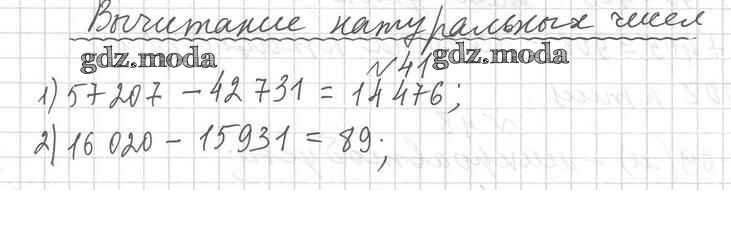 Вычитание натуральных чисел
gdz.moda №41 gdz.moda
1) 57 207 - 42 731 = 14 476;
2) 16 020 - 15931 = 89;